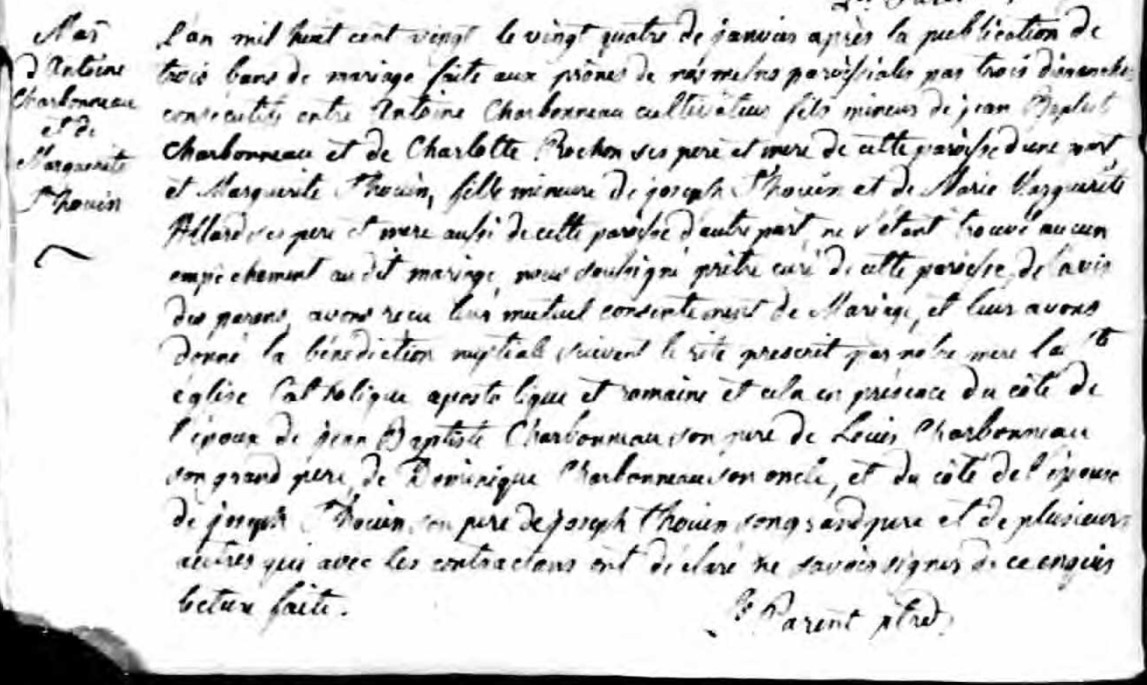 Mar
d'Antoine
Charbonneau
et de
Marguerite
Thouin
L'an mil huit cent vingt le vingt quatre de janvier après la publication de
trois bans de mariage faite aux prônes de nos messes paroissiales par trois dimanches
consécutifs entre Antoine Charbonneau cultivateur fils mineur de jean Baptist
Charbonneau et de Charlotte Rochon ses pere et mere de cette paroisse d'une part
et Marguerite Thouin, fille mineure de joseph Thouin et de Marie Marguerite
Allard ses pere et mere aussi de cette paroisse d'autre part, ne s'étant trouvé aucun
empêchement au dit mariage, nous soussigné prêtre curé de cette paroisse, de l'avis
des parens, avons reçu leur mutuel consentement de Mariage, et leur avons
donné la bénédiction nuptiale suivant le rite prescrit par notre mere la Ste
église Catholique apostolique et romaine et cela en présence du côté de
l'époux de jean Baptiste Charbonneau son pere de Louis Charbonneau
son grand pere, de Dominique Charbonneau son oncle, et du côté de l'épouse
de joseph Thouin son pere de joseph Thouin son grand pere et de plusieurs
autres qui avec les contractans ont déclaré ne savoir signer de ce enquis
lecture faite.
Parent ptre